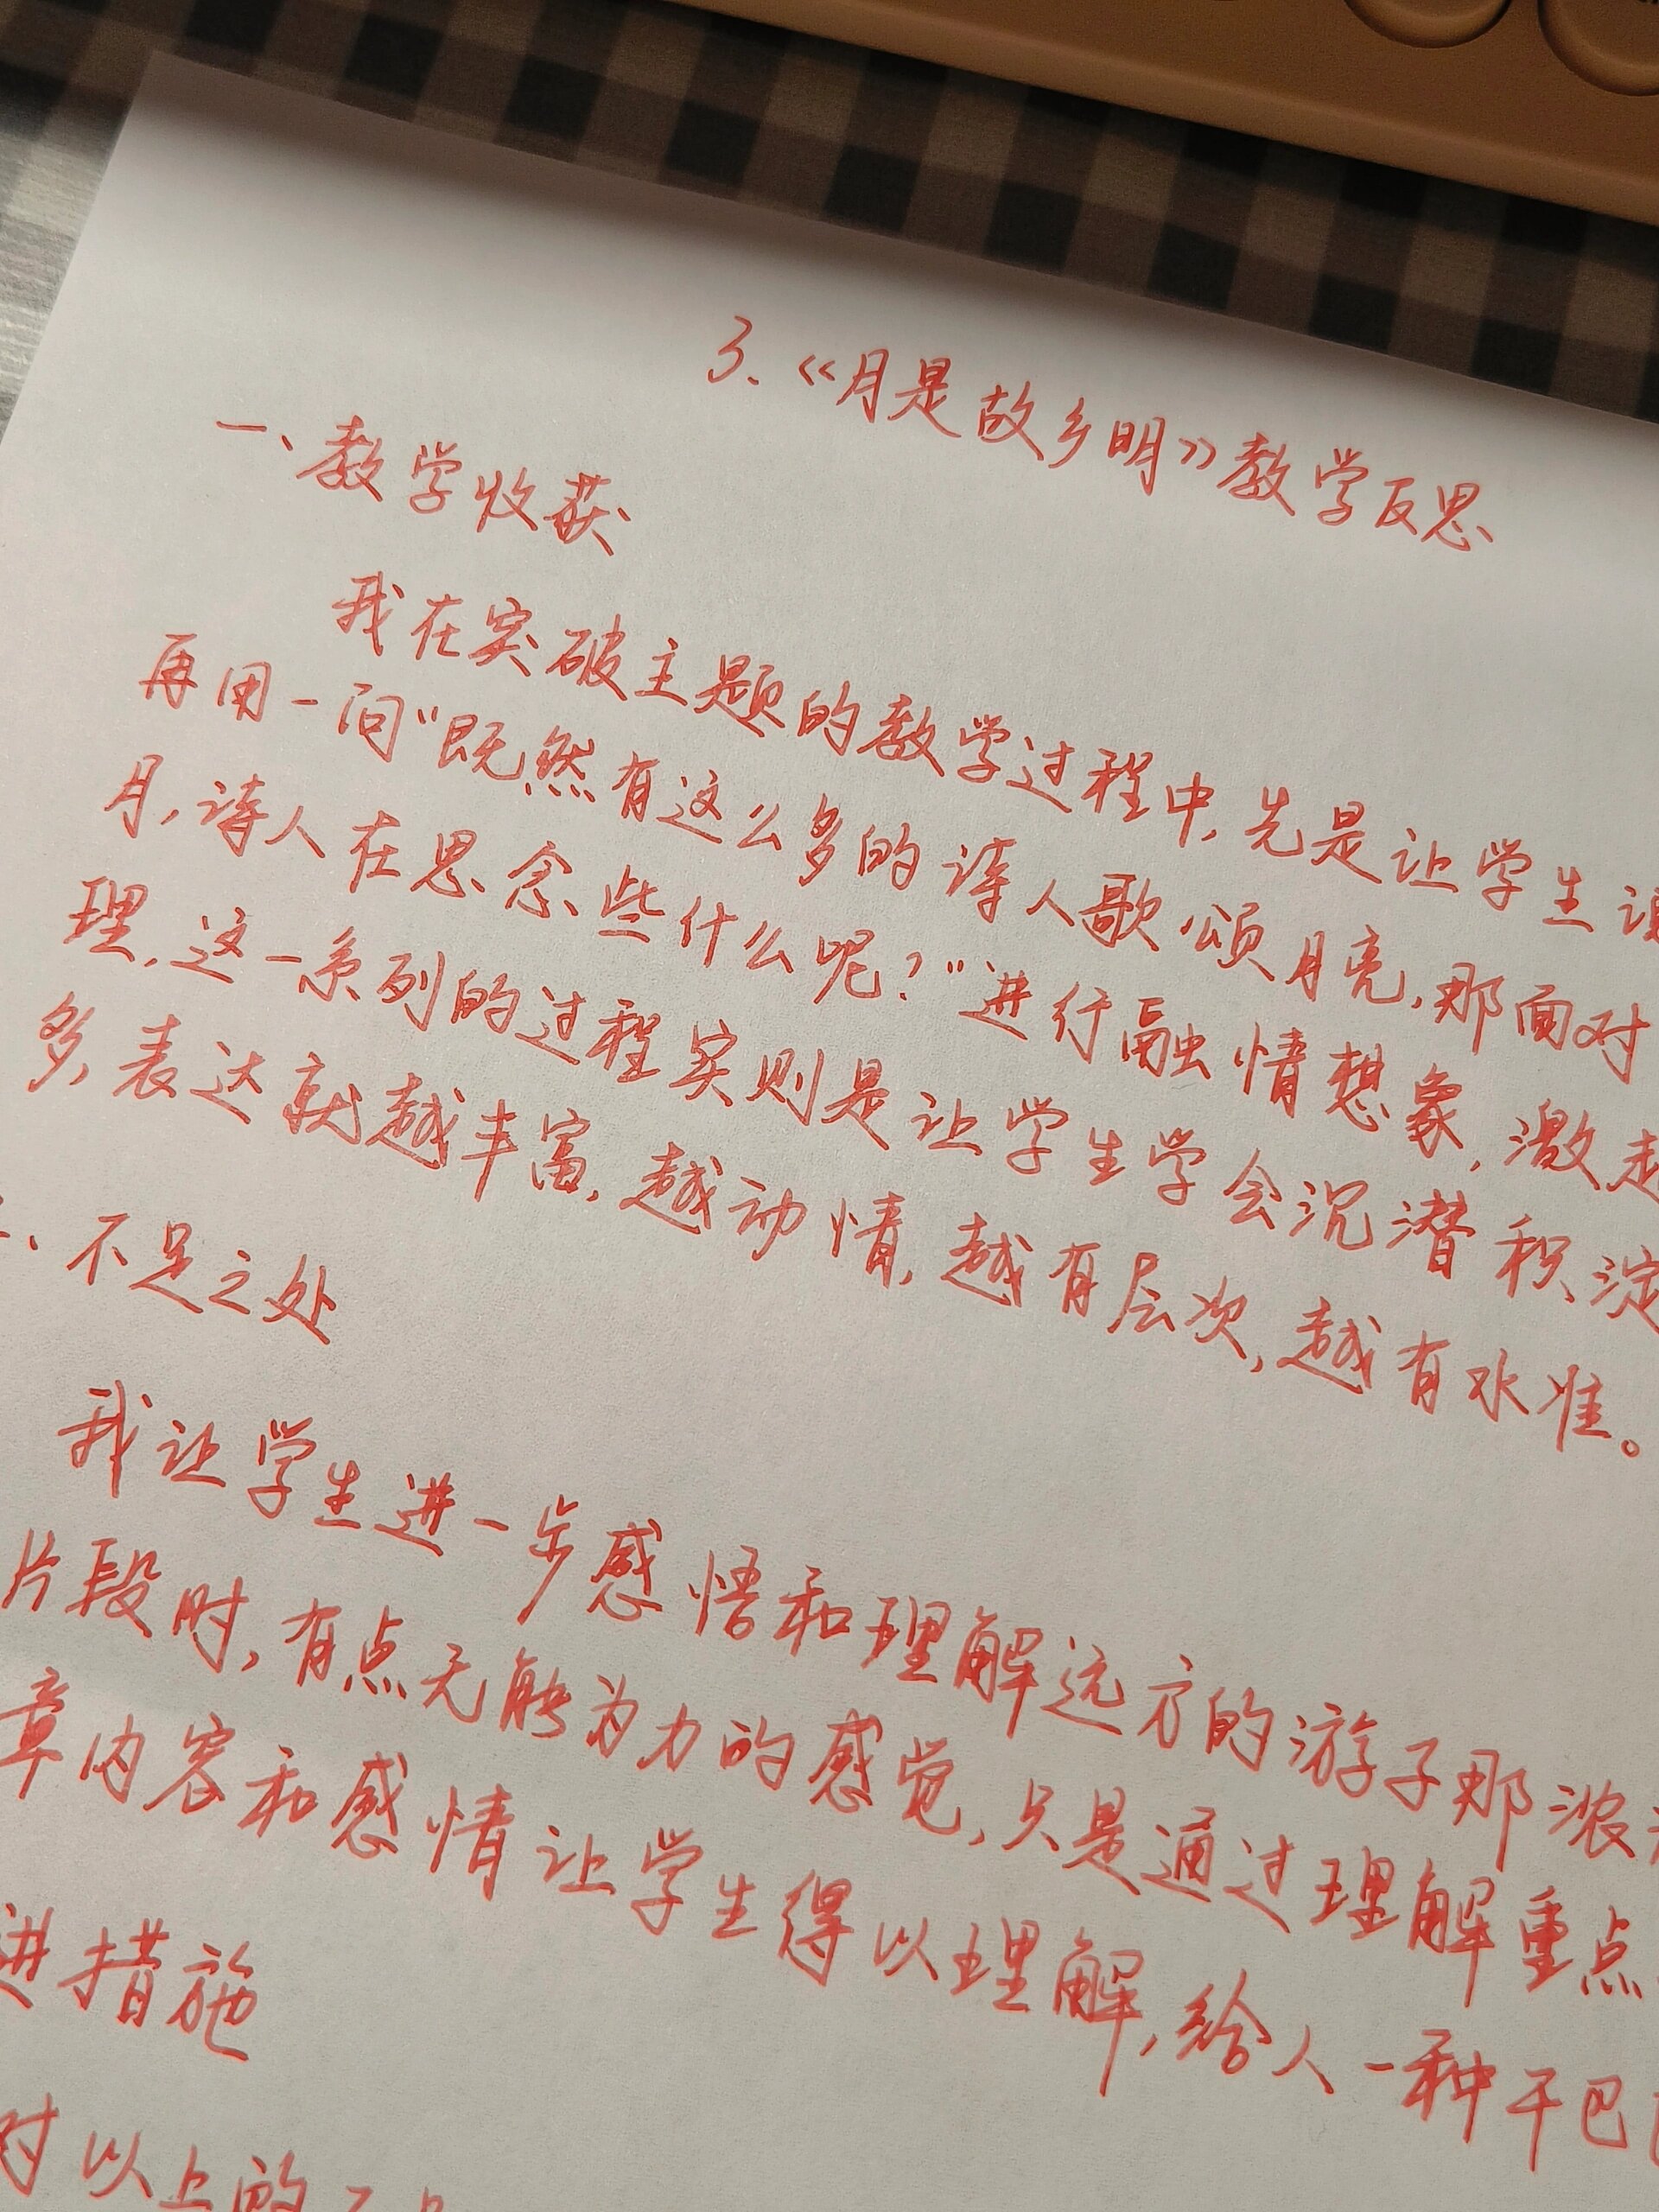 3、《月是故乡明》教学反思
一、教学收获
我在突破主题的教学过程中，先是让学生
再用一问“既然有这么多的诗人歌颂月亮，那面对
月，诗人在思念些什么呢？”进行融情想象，激起
理，这一系列的过程实则是让学生学会沉潜积淀
多，表达就越丰富，越动情，越有层次，越有水准。
、不足之处
我让学生进一步感悟和理解远方的游子那浓
片段时，有点无能为力的感觉，只是通过理解重点
章内容和感情让学生得以理解，给人一种干巴
进措施
对以上的不足